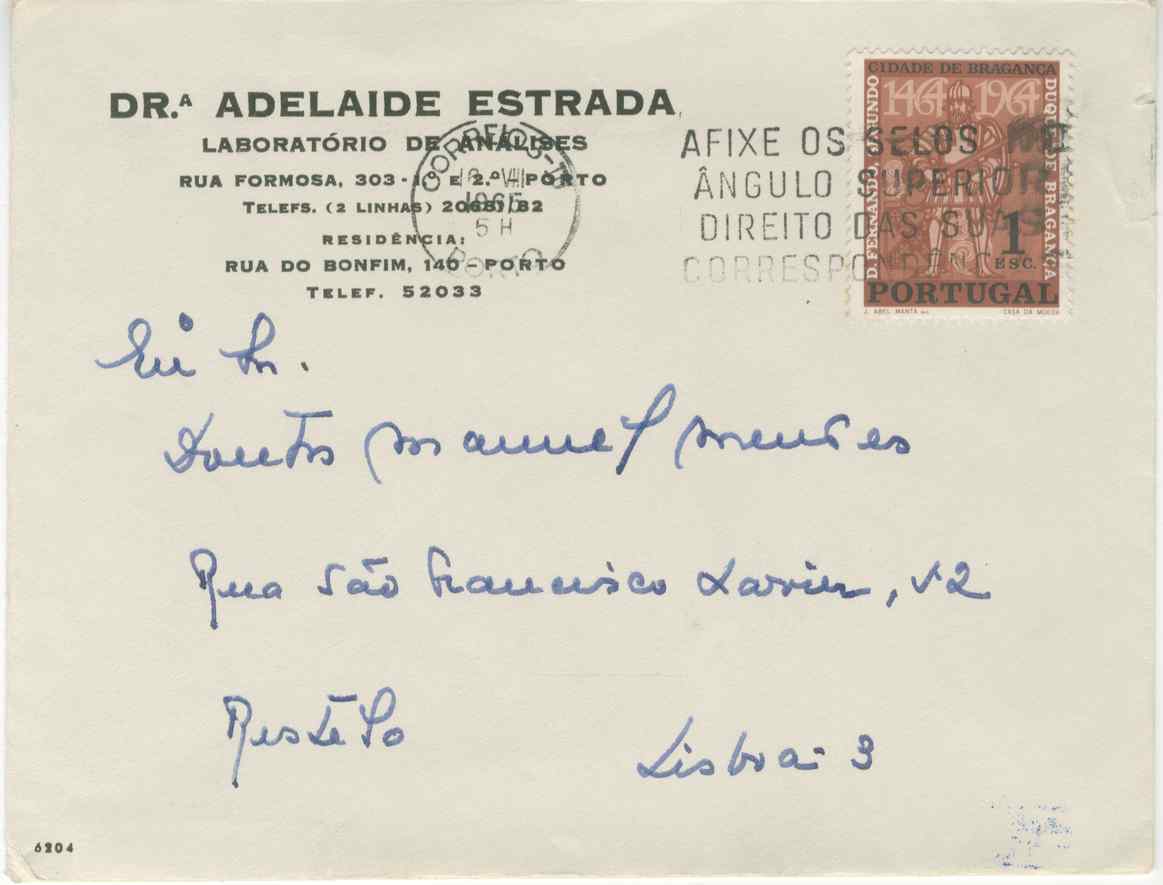 DR.ª ADELAIDE ESTRADA
LABORATÓRIO DE ANÁLISES
RUA FORMOSA, 303 - 1.º E 2.º - PORTO
TELEFS. (2 LINHAS) 20681/82
RESIDÊNCIA:
RUA DO BONFIM, 140 - PORTO
TELEF. 52033
CORREIOS
VIII
5 H
PORTO
AFIXE OS SELOS
ÂNGULO SUPERIOR
DIREITO DAS SUAS
CORRESPONDÊNC
CIDADE DE BRAGANÇA
1464 1964
D. FERNANDO, SEGUNDO
DUQUE DE BRAGANÇA
1
ESC.
PORTUGAL
J. ABEL MANTA
CASA DA MOEDA
Sr.
Doutor Manuel Mendes
Rua São Francisco Xavier, 12
Restêlo
Lisboa - 3
6204